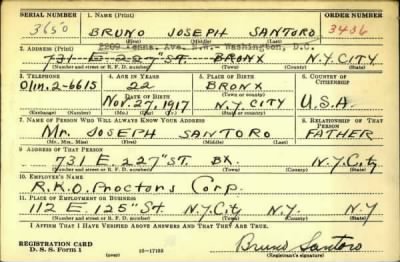 SERIAL NUMBER 1. NAME (Print) ORDER NUMBER
3650 BRUNO JOSEPH SANTORO 3436
(First) (Middle) (Last)
2. ADDRESS (Print) 2209 Penna. Ave. N.W.- Washington, D.C.
731 E 227" ST. BRONX N.Y. CITY
(Number and street or R. F. D. number) (Town) (County) (State)
3. TELEPHONE 4. AGE IN YEARS 5. PLACE OF BIRTH 6. COUNTRY OF CITIZENSHIP
Olin. 2-6615 22 BRONX
DATE OF BIRTH (Town or county)
Nov. 27, 1917 N.Y. CITY U.S.A.
(Exchange) (Number) (Mo.) (Day) (Yr.) (State or country)
7. NAME OF PERSON WHO WILL ALWAYS KNOW YOUR ADDRESS 8. RELATIONSHIP OF THAT PERSON
Mr. JOSEPH SANTORO FATHER
(Mr., Mrs., Miss) (First) (Middle) (Last)
9. ADDRESS OF THAT PERSON
731 E. 227" ST. BX. N.Y. City
(Number and street or R. F. D. number) (Town) (County) (State)
10. EMPLOYER'S NAME
R.K.O. Proctors Corp.
11. PLACE OF EMPLOYMENT OR BUSINESS
112 E. 125" St. N.Y. City N.Y. N.Y
(Number and street or R. F. D. number) (Town) (County) (State)
I AFFIRM THAT I HAVE VERIFIED ABOVE ANSWERS AND THAT THEY ARE TRUE.
REGISTRATION CARD
D. S. S. Form 1 (over) 16—17105 Bruno Santoro
(Registrant's signature)